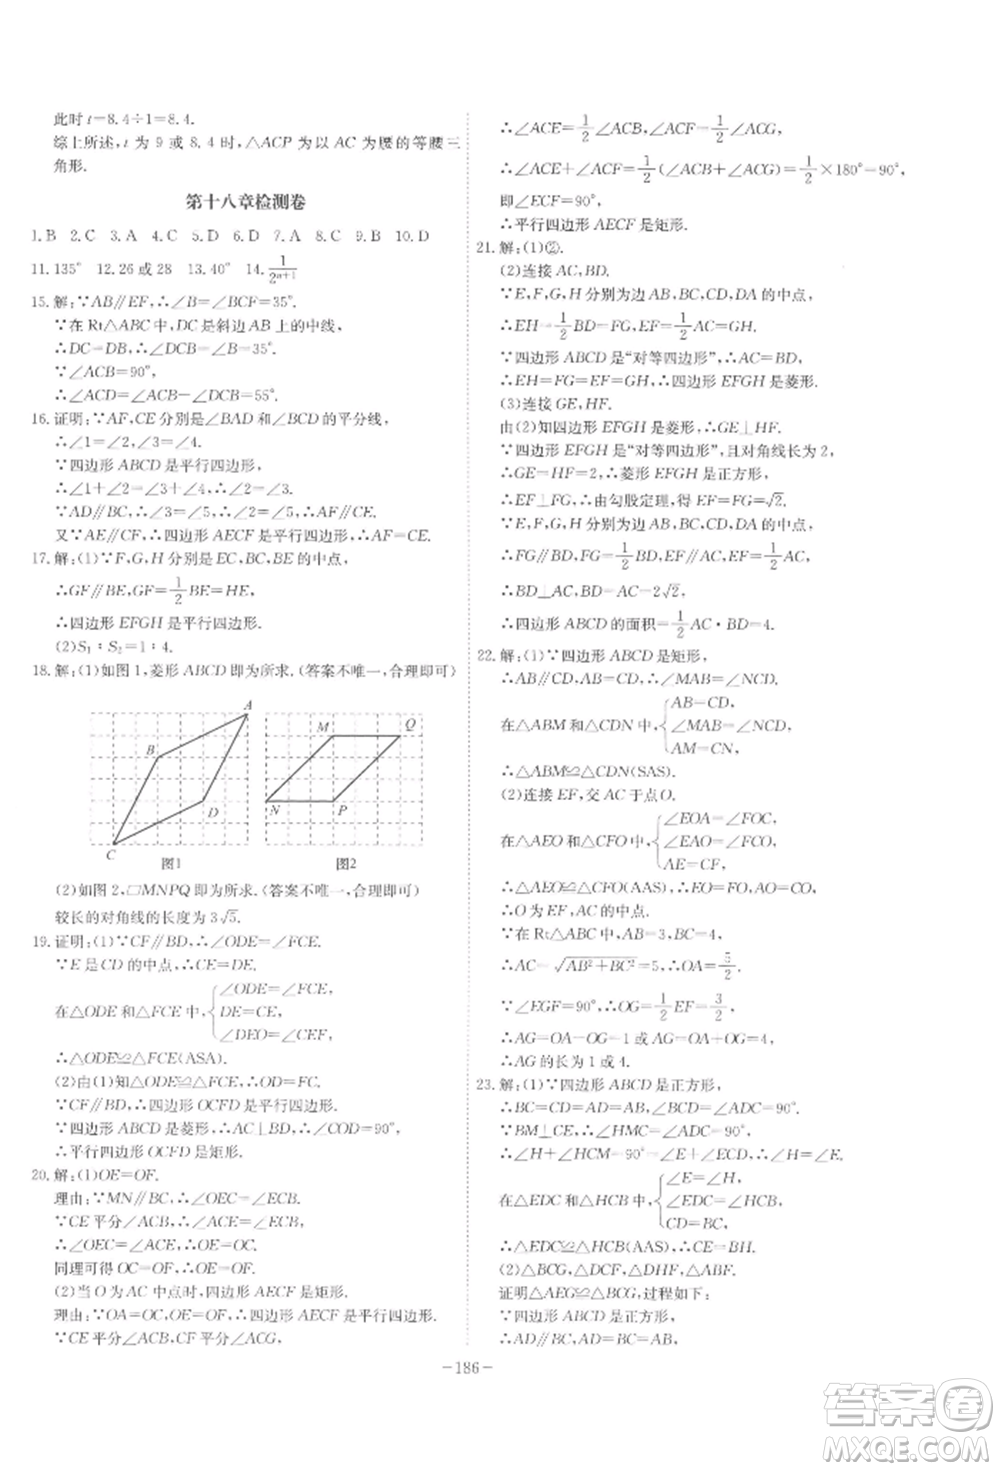 此时 t=8.4÷1=8.4.
综上所述,t 为 9 或 8.4 时,△ACP 为以 AC 为腰的等腰三
角形.
第十八章检测卷
1.B 2.C 3.A 4.C 5.D 6.D 7.A 8.C 9.B 10.D
11.135° 12.26 或 28 13.40° 14.1/2ⁿ⁺¹
15.解:∵AB∥EF,∴∠B=∠BCF=35°.
∵在 Rt△ABC 中,DC 是斜边 AB 上的中线,
∴DC=DB,∴∠DCB=∠B=35°.
∵∠ACB=90°,
∴∠ACD=∠ACB-∠DCB=55°.
16.证明:∵AF,CE 分别是∠BAD 和∠BCD 的平分线,
∴∠1=∠2,∠3=∠4.
∵四边形 ABCD 是平行四边形,
∴∠1+∠2=∠3+∠4,∴∠2=∠3.
∵AD∥BC,∴∠3=∠5,∴∠2=∠5,∴AF∥CE.
又∵AE∥CF,∴四边形 AECF 是平行四边形.
17.解:(1)∵F,G,H 分别是 EC,BC,BE 的中点,
∴GF∥BE,GF=1/2BE=HE,
∴四边形 EFGH 是平行四边形.
(2)S₁∶S₂=1∶4.
18.解:(1)如图 1,菱形 ABCD 即为所求.(答案不唯一,合理即可)
A
B
D
C
图1
M
Q
N
P
图2
(2)如图 2,□MNPQ 即为所求.(答案不唯一,合理即可)
较长的对角线的长度为 3√5.
19.证明:(1)∵CF∥BD,∴∠ODE=∠FCE.
∵E 是 CD 的中点,∴CE=DE.
在△ODE 和△FCE 中,{∠ODE=∠FCE,
DE=CE,
∠DEO=∠CEF,
∴△ODE≌△FCE(ASA).
(2)由(1)知△ODE≌△FCE,∴OD=FC.
∵CF∥BD,∴四边形 OCFD 是平行四边形.
∵四边形 ABCD 是菱形,∴AC⊥BD,∴∠COD=90°,
∴平行四边形 OCFD 是矩形.
20.解:(1)OE=OF.
理由:∵MN∥BC,∴∠OEC=∠ECB.
∵CE 平分∠ACB,∴∠ACE=∠ECB,
∴∠OEC=∠ACE,∴OE=OC.
同理可得 OC=OF,∴OE=OF.
(2)当 O 为 AC 中点时,四边形 AECF 是矩形.
理由:∵OA=OC,OE=OF,∴四边形 AECF 是平行四边形.
∵CE 平分∠ACB,CF 平分∠ACG,
∴∠ACE=1/2∠ACB,∠ACF=1/2∠ACG,
∴∠ACE+∠ACF=1/2(∠ACB+∠ACG)=1/2×180°=90°,
即∠ECF=90°,
∴平行四边形 AECF 是矩形.
21.解:(1)②.
(2)连接 AC,BD.
∵E,F,G,H 分别为边 AB,BC,CD,DA 的中点,
∴EH=1/2BD=FG,EF=1/2AC=GH.
∵四边形 ABCD 是“对等四边形”,∴AC=BD,
∴EH=FG=EF=GH,∴四边形 EFGH 是菱形.
(3)连接 GE,HF.
由(2)知四边形 EFGH 是菱形,∴GE⊥HF.
∵四边形 EFGH 是“对等四边形”,且对角线长为 2,
∴GE=HF=2,∴菱形 EFGH 是正方形,
∴EF⊥FG,∴由勾股定理,得 EF=FG=√2.
∵E,F,G 分别为边 AB,BC,CD 的中点,
∴FG∥BD,FG=1/2BD,EF∥AC,EF=1/2AC,
∴BD⊥AC,BD=AC=2√2,
∴四边形 ABCD 的面积=1/2AC·BD=4.
22.解:(1)∵四边形 ABCD 是矩形,
∴AB∥CD,AB=CD,∴∠MAB=∠NCD.
在△ABM 和△CDN 中,{AB=CD,
∠MAB=∠NCD,
AM=CN,
∴△ABM≌△CDN(SAS).
(2)连接 EF,交 AC 于点O.
在△AEO 和△CFO 中,{∠EOA=∠FOC,
∠EAO=∠FCO,
AE=CF,
∴△AEO≌△CFO(AAS),∴EO=FO,AO=CO,
∴O 为 EF,AC 的中点.
∵在 Rt△ABC 中,AB=3,BC=4,
∴AC=√AB²+BC²=5,∴OA=5/2.
∵∠EGF=90°,∴OG=1/2EF=3/2,
∴AG=OA-OG=1 或 AG=OA+OG=4,
∴AG 的长为 1 或 4.
23.解:(1)∵四边形 ABCD 是正方形,
∴BC=CD=AD=AB,∠BCD=∠ADC=90°.
∵BM⊥CE,∴∠HMC=∠ADC=90°,
∴∠H+∠HCM=90°=∠E+∠ECD,∴∠H=∠E.
在△EDC 和△HCB 中,{∠E=∠H,
∠EDC=∠HCB,
CD=BC,
∴△EDC≌△HCB(AAS),∴CE=BH.
(2)△BCG,△DCF,△DHF,△ABF.
证明△AEG≌△BCG,过程如下:
∵四边形 ABCD 是正方形,
∴AD∥BC,AD=BC=AB,
－186－
答案卷
MXQE.COM